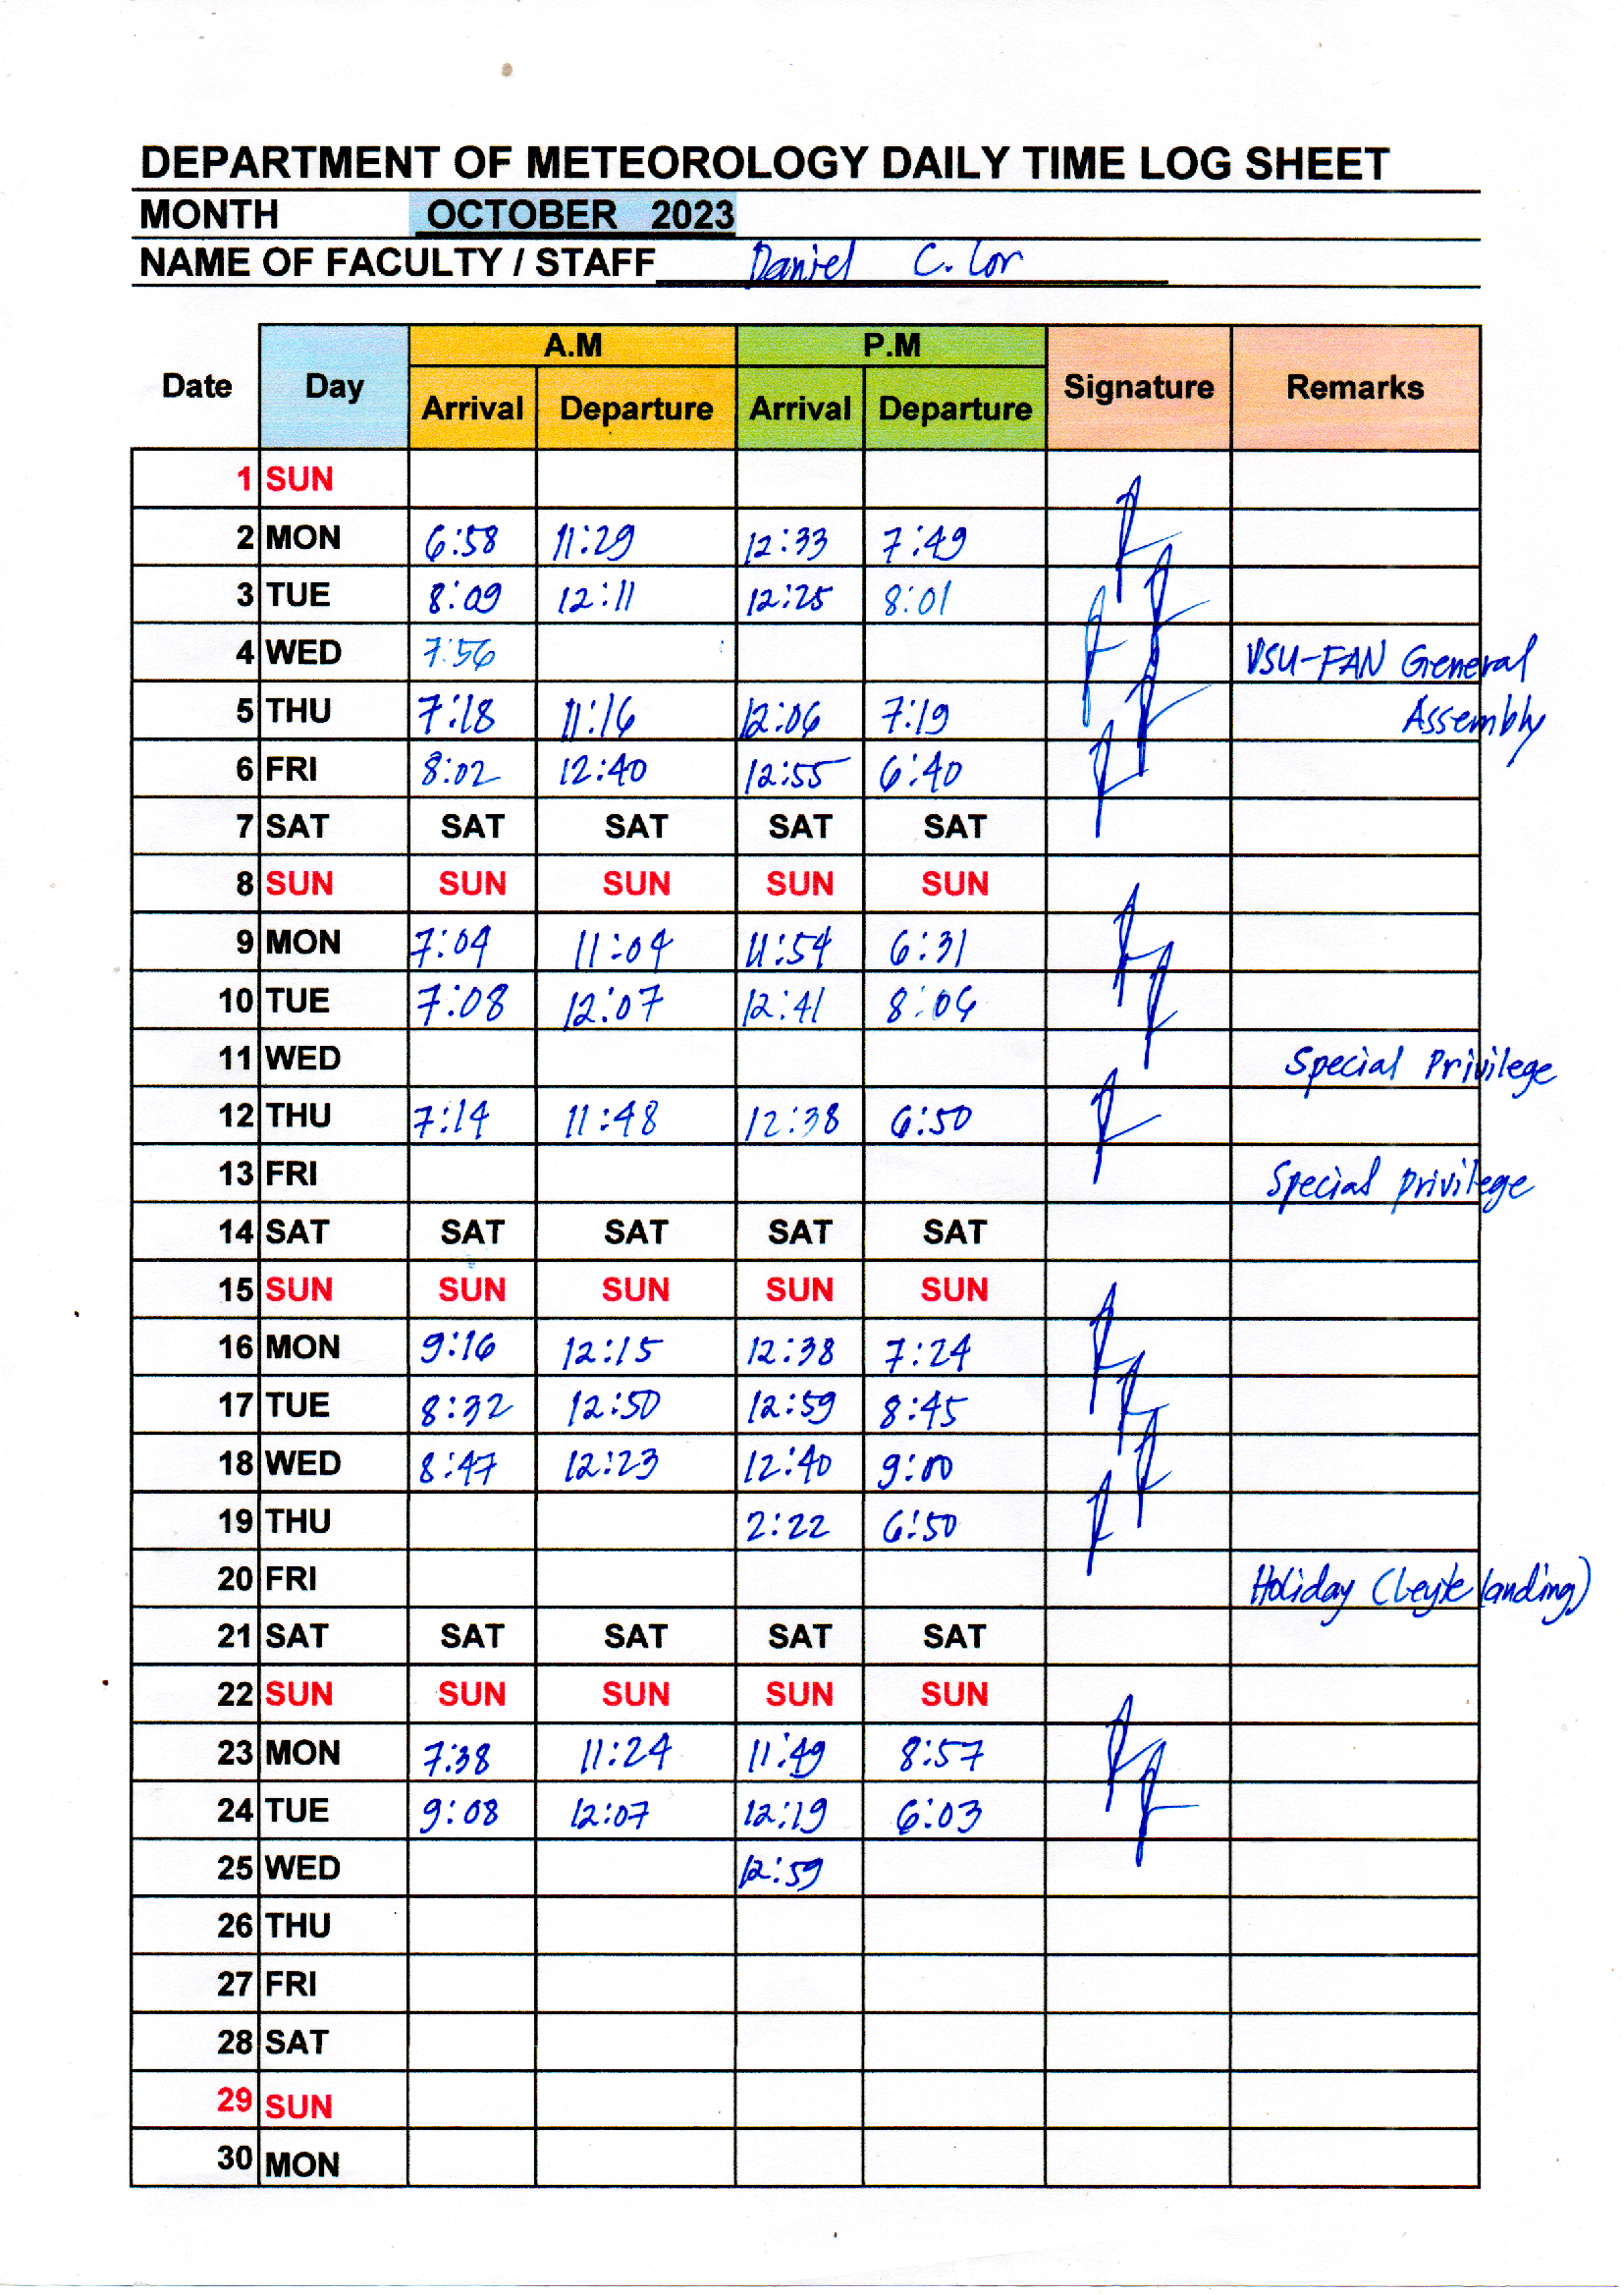 DEPARTMENT OF METEOROLOGY DAILY TIME LOG SHEET
MONTH OCTOBER 2023
NAME OF FACULTY / STAFF Daniel C. Lor
A.M P.M
Date Day Signature Remarks
Arrival Departure Arrival Departure
1 SUN
2 MON 6:58 11:29 12:33 7:49
3 TUE 8:09 12:11 12:25 8:01
4 WED 7:56 VSU-FAN General
5 THU 7:18 11:16 12:06 7:19 Assembly
6 FRI 8:02 12:40 12:55 6:40
7 SAT SAT SAT SAT SAT
8 SUN SUN SUN SUN SUN
9 MON 7:04 11:04 11:54 6:31
10 TUE 7:08 12:07 12:41 8:06
11 WED Special Privilege
12 THU 7:14 11:48 12:38 6:50
13 FRI Special privilege
14 SAT SAT SAT SAT SAT
15 SUN SUN SUN SUN SUN
16 MON 9:16 12:15 12:38 7:24
17 TUE 8:32 12:50 12:59 8:45
18 WED 8:47 12:23 12:40 9:00
19 THU 2:22 6:50
20 FRI Holiday (Leyte landing)
21 SAT SAT SAT SAT SAT
22 SUN SUN SUN SUN SUN
23 MON 7:38 11:24 11:49 8:57
24 TUE 9:08 12:07 12:19 6:03
25 WED 12:59
26 THU
27 FRI
28 SAT
29 SUN
30 MON